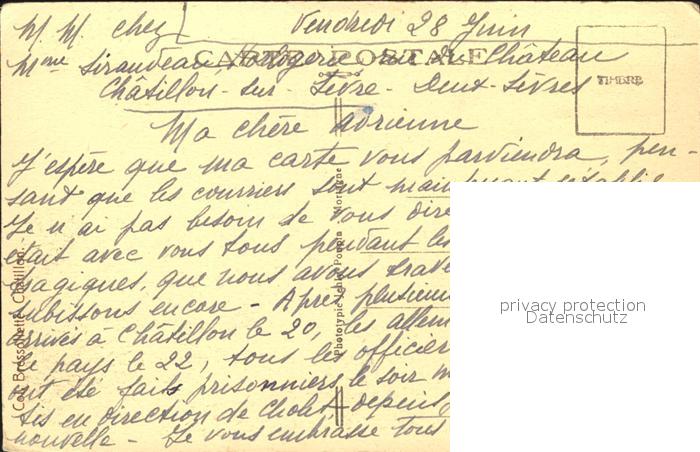 M. M. chez Vendredi 28 Juin
CARTE POSTALE
Mme Siraudeau Horlogerie rue du Château
TIMBRE
Châtillon-sur-Sèvre - Deux-Sèvres
Ma chère Adrienne
J'espère que ma carte vous parviendra, pen-
sant que les courriers sont maintenant établis
Je n'ai pas besoin de vous dire
était avec vous tous pendant les
tragiques, que nous avons
subissons encore - Après plusieurs
arrivés à Châtillon le 20, les allem
le pays le 22, tous les officier
ont été faits prisonniers le soir m
tis en direction de Cholet, depuis,
nouvelle - Je vous embrasse tous
Phototypie Mortagne
Coll. Brossollette, Châtillon
privacy protection
Datenschutz